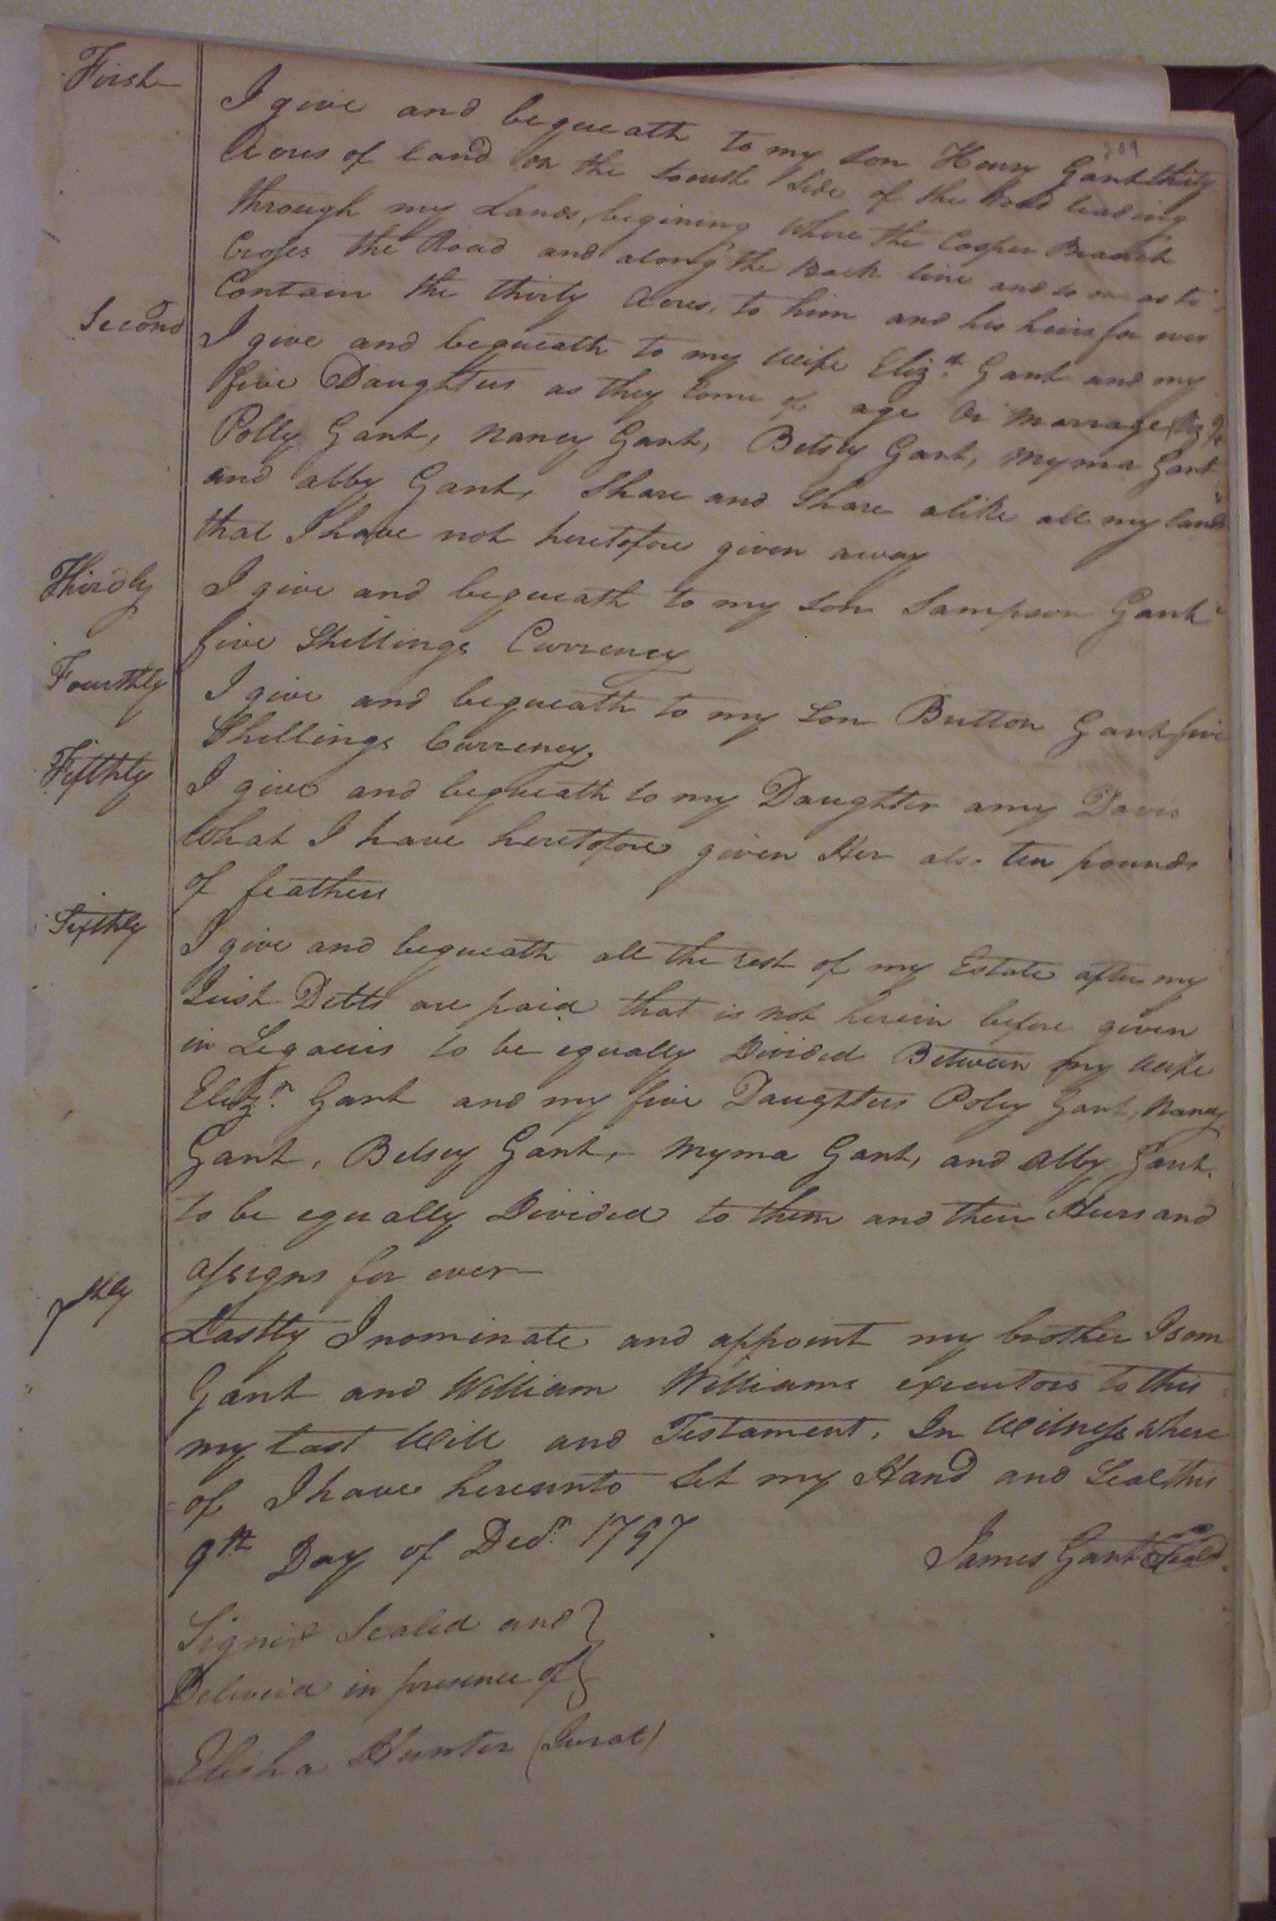 209
First I give and bequeath to my son Henry Gant thirty
Acres of land on the South Side of the Road leading
through my Lands, begining where the Cooper Branch
Crosses the Road and along the Back line and so on as to
Contain the thirty Acres, to him and his heirs for ever
Second I give and bequeath to my Wife Elizth Gant and my
five Daughters as they Come of age or Marrage
Polly Gant, Nancy Gant, Betsey Gant, Myma Gant
and Abby Gant, Share and Share alike all my lands
that I have not heretofore given away
Thirdly I give and bequeath to my Son Sampson Gant
five Shillings Currency
Fourthly I give and bequeath to my Son Button Gant five
Shillings Currency.
Fifthly I give and bequeath to my Daughter Amy Davis
What I have heretofore given Her also ten pounds
of feathers
Sixthly I give and bequeath all the rest of my Estate after my
Just Detts are paid that is not herein before given
in Legacies to be equally Divided Between my Wife
Elizn Gant and my five Daughters Poley Gant, Nancy
Gant, Betsey Gant, Myma Gant, and Abby Gant.
to be equally Divided to them and their Heirs and
assigns for ever
7thly Lastly I nominate and appoint my brother Isom
Gant and William Williams executors to this
my Last Will and Testament. In Witness Where
of I have hereunto Set my Hand and Seal this
9th Day of Decr 1797
James Gant Seal
Signed Sealed and
Deliverd in presence of
Elisha Hunter (Jurat)